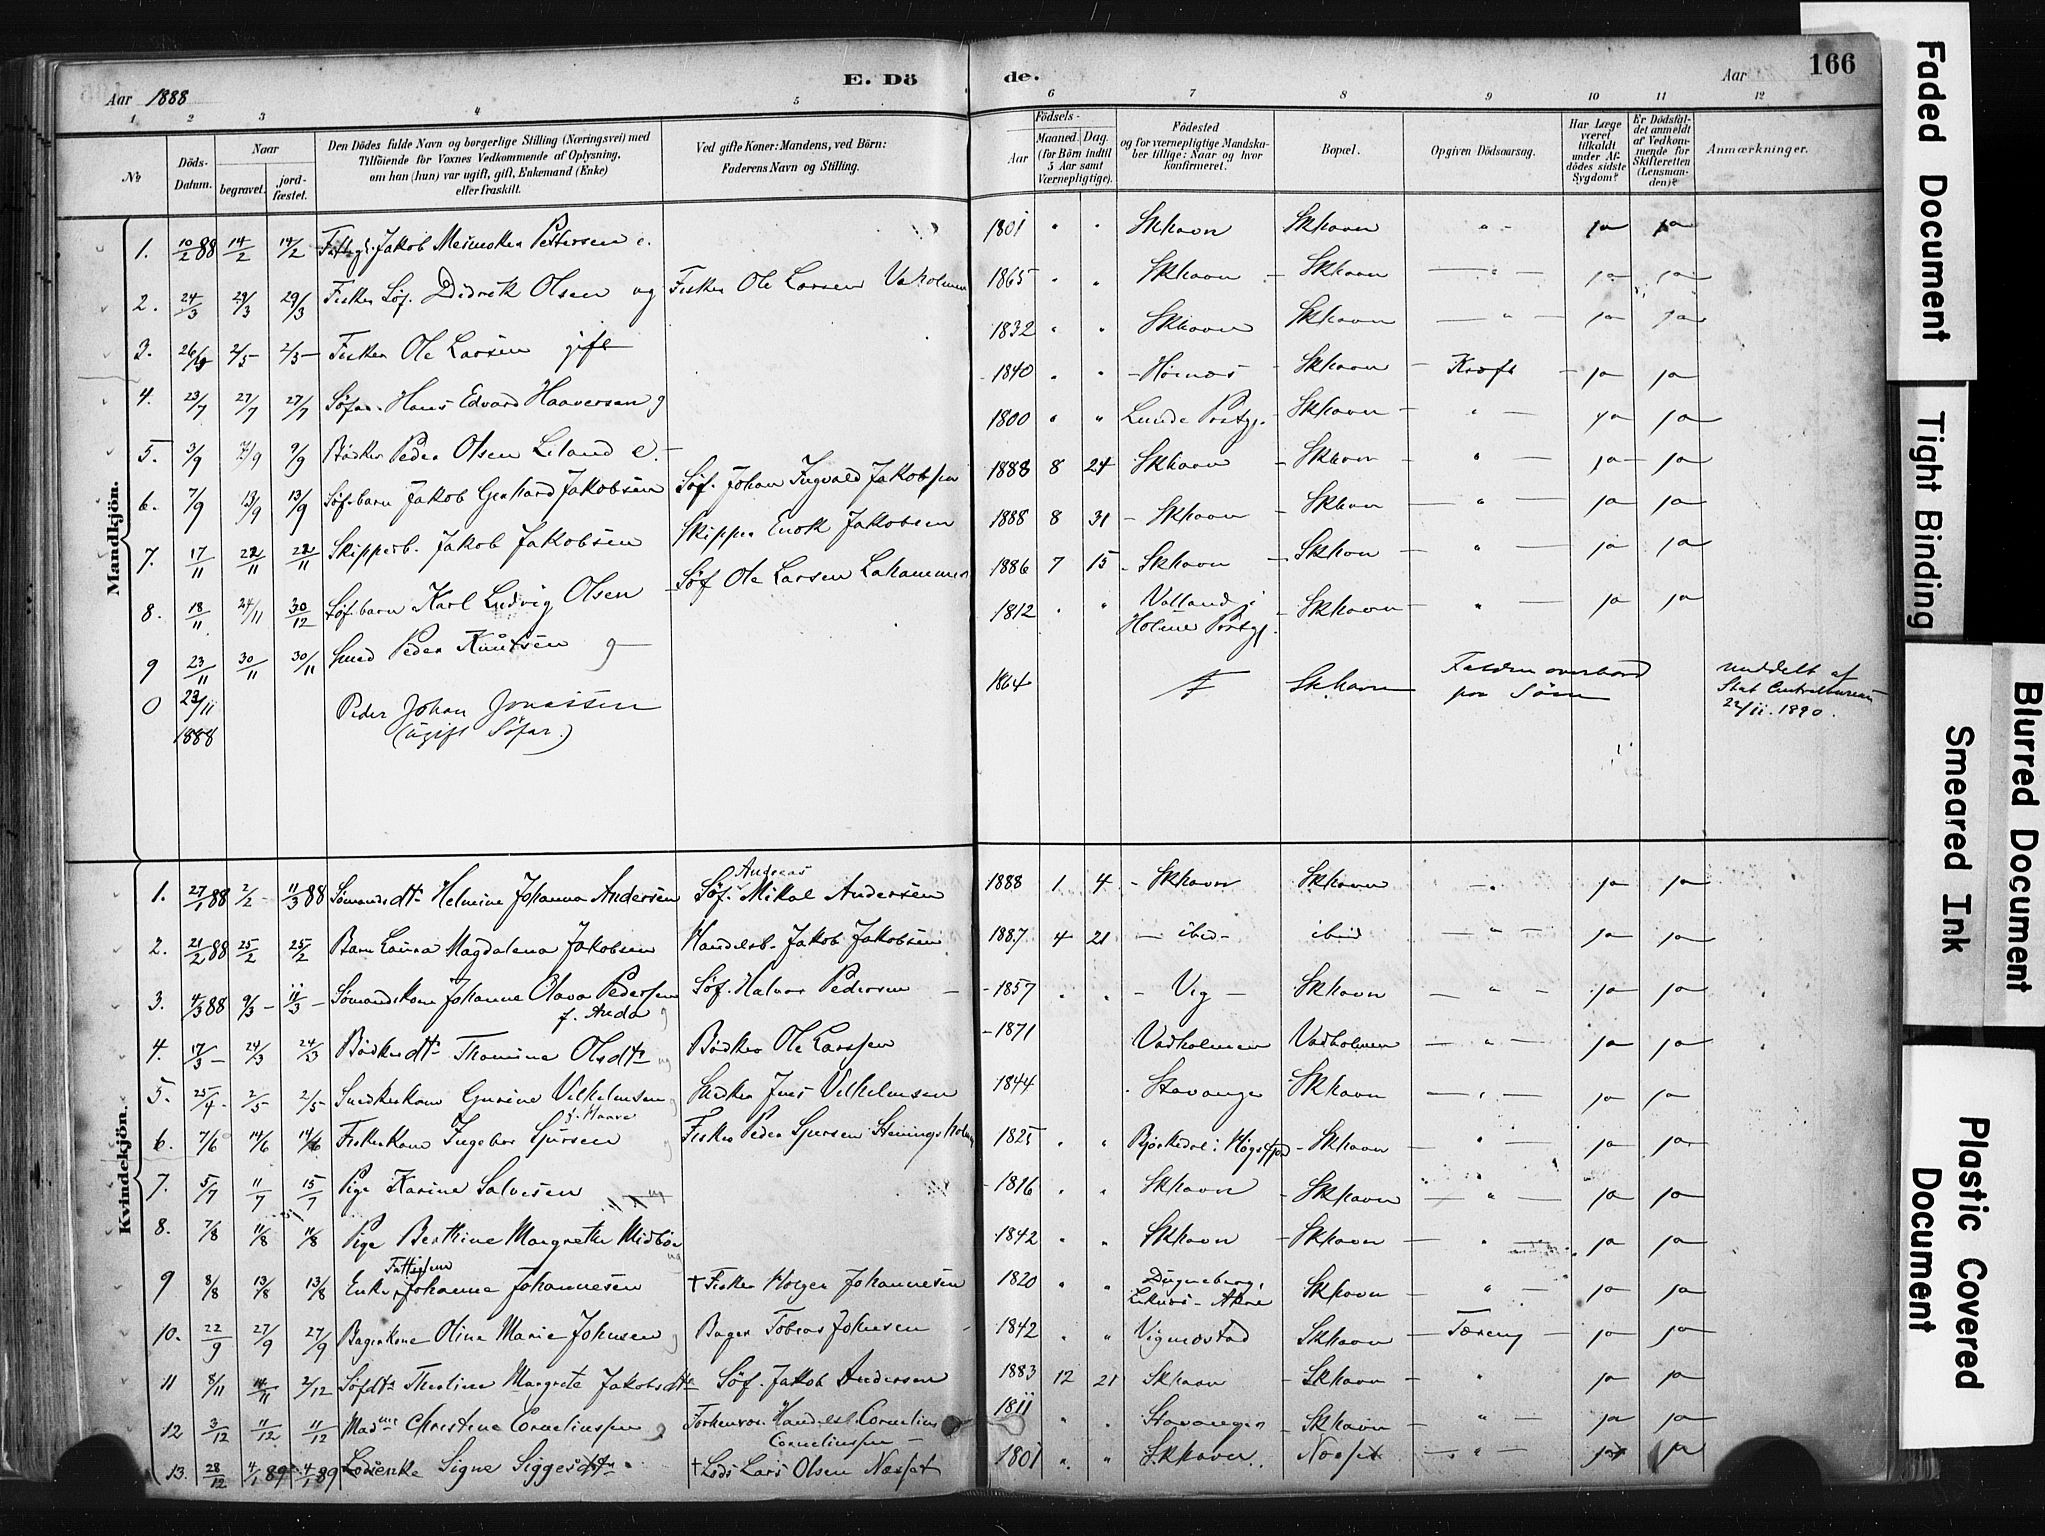 E. Dö de.
Aar 1888
Aar
166
1 2 3 4 5 6 7 8 9 10 11 12
№
Döds-Datum.
Naar
begravet.
jord-fæstet.
Den Dödes fulde Navn og borgerlige Stilling (Næringsvei) med
Tilföiende for Voxnes Vedkommende af Oplysning,
om han (hun) var ugift, gift, Enkemand (Enke)
eller fraskilt.
Ved gifte Koner: Mandens, ved Börn:
Faderens Navn og Stilling.
Födsels-
Aar
Maaned. Dag.
(for Börn indtil
5 Aar samt
Værnepligtige).
Födested
og for værnepligtige Mandska-
ber tillige: Naar og hvor
konfirmeret.
Bopæl.
Opgiven Dödsaarsag.
Har Læge
været
tilkaldt
under Af-
dödes sidste
Sygdom?
Er Dödsfal-
det anmeldt
af Vedkom-
mende for
Skifteretten
(Lensman-
den)?
Anmærkninger.
Mandkjön.
1. 10/2 88 14/2 14/2 Jakob Pettersen e. 1801 " " Skhavn Skhavn " ja ja
2. 24/3 29/3 29/3 Fisker Søf. Didrik Olsen ug Fisker Ole Larsen Vaholmen 1865 " " Skhavn Skhavn " ja ja
3. 2/5 2/5 Fisker Ole Larsen gift 1832 " " Skhavn Skhavn " ja ja
4. 23/7 27/7 27/7 Søfar. Hans Edvard Haaversen g 1840 " " Hornæs Skhavn Kræft ja ja
5. 3/9 7/9 9/9 Bødker Peder Olsen Leland e. 1800 " " Lunde Prstgj. Skhavn " ja ja
6. 7/9 13/9 13/9 Søf. barn Jakob Gerhard Jakobsen Søf. Johan Ingvald Jakobsen 1888 8 24 Skhavn Skhavn " ja ja
7. 17/11 22/11 22/11 Skipperb. Jakob Jakobsen Skipper Enok Jakobsen 1888 8 31 Skhavn Skhavn " ja ja
8. 18/11 24/11 30/12 Søf. barn Karl Ludvig Olsen Søf Ole Larsen Lahammer 1886 7 15 Skhavn Skhavn " ja ja
9 23/11 30/11 30/11 Smed Peder Knutsen g 1812 " " Valland i Holme Prstgj. Skhavn " ja ja
0 23/11 1888 Peder Johan Jonassen 1864 F Skhavn Falden overbord paa Søen meddelt af
(ugift Søfar.) Stat. Centralbureau
22/11. 1890.
Kvindekjön.
1. 27/1 88 2/2 11/3 88 Sømandsdtr Helmine Johanna Andersen Søf. Andreas Mikal Andersen 1888 1 4 Skhavn Skhavn " ja ja
2. 21/2 88 25/2 25/2 Barn Laura Magdalena Jakobsen Handelsb. Jakob Jakobsen 1887 4 21 ibid ibid " ja ja
3. 4/3 88 9/3 11/3 Sømandskone Johanne Olava Pedersen Søf. Halvor Pedersen 1857 " " Vig Skhavn " ja ja
f. Anda g
4. 17/3 24/3 24/3 Bødkerdtr Thomine Olsdtr ug Bødker Ole Larsen 1871 Vadholmen Vadholmen " ja ja
5. 25/4 2/5 2/5 Snedkerkone Gurine Vilhelmsen g Snedker Jens Vilhelmsen 1844 Stavanger Skhavn " ja ja
f. Haave
6. 7/6 14/6 14/6 Fiskerkone Ingebor Sjursen g Fisker Peder Sjursen Steiningsholm 1825 " " Bjørkedal i Høgsfjord Skhavn " ja ja
7. 5/7 11/7 15/7 Pige Karine Salvesen ug 1816 " " Skhavn Skhavn " ja ja
8. 7/8 11/8 11/8 Pige Berthine Margrethe Midbøe ug 1842 " " Skhavn Skhavn " ja ja
9 8/8 13/8 13/8 Enke Johanna Johannesen † Fisker Holger Johannesen 1820 " " Skhavn " ja ja
10. 22/9 27/9 27/9 Bagerkone Olina Marie Johnsen g Bager Tobias Johnsen 1842 " " Vigmostad Skhavn Tæring ja ja
11 8/11 14/11 2/12 Søfdtr Thealine Margrete Jakobsdtr Søf. Jakob Andersen 1883 12 21 Skhavn Skhavn " ja ja
12 3/12 11/12 11/12 Madme Christine Corneliussen g Forhenvær. Handelsb. Cornelius 1811 " " Stavanger Skhavn " ja ja
Corneliussen
13. 28/12 4/1 89 4/1 89 Lodsenke Signe Siggesdtr † Lods Lars Olsen Næsset 1801 " " Skhavn Næset " ja ja
Faded Document
Tight Binding
Blurred Document
Smeared Ink
Plastic Covered
Document